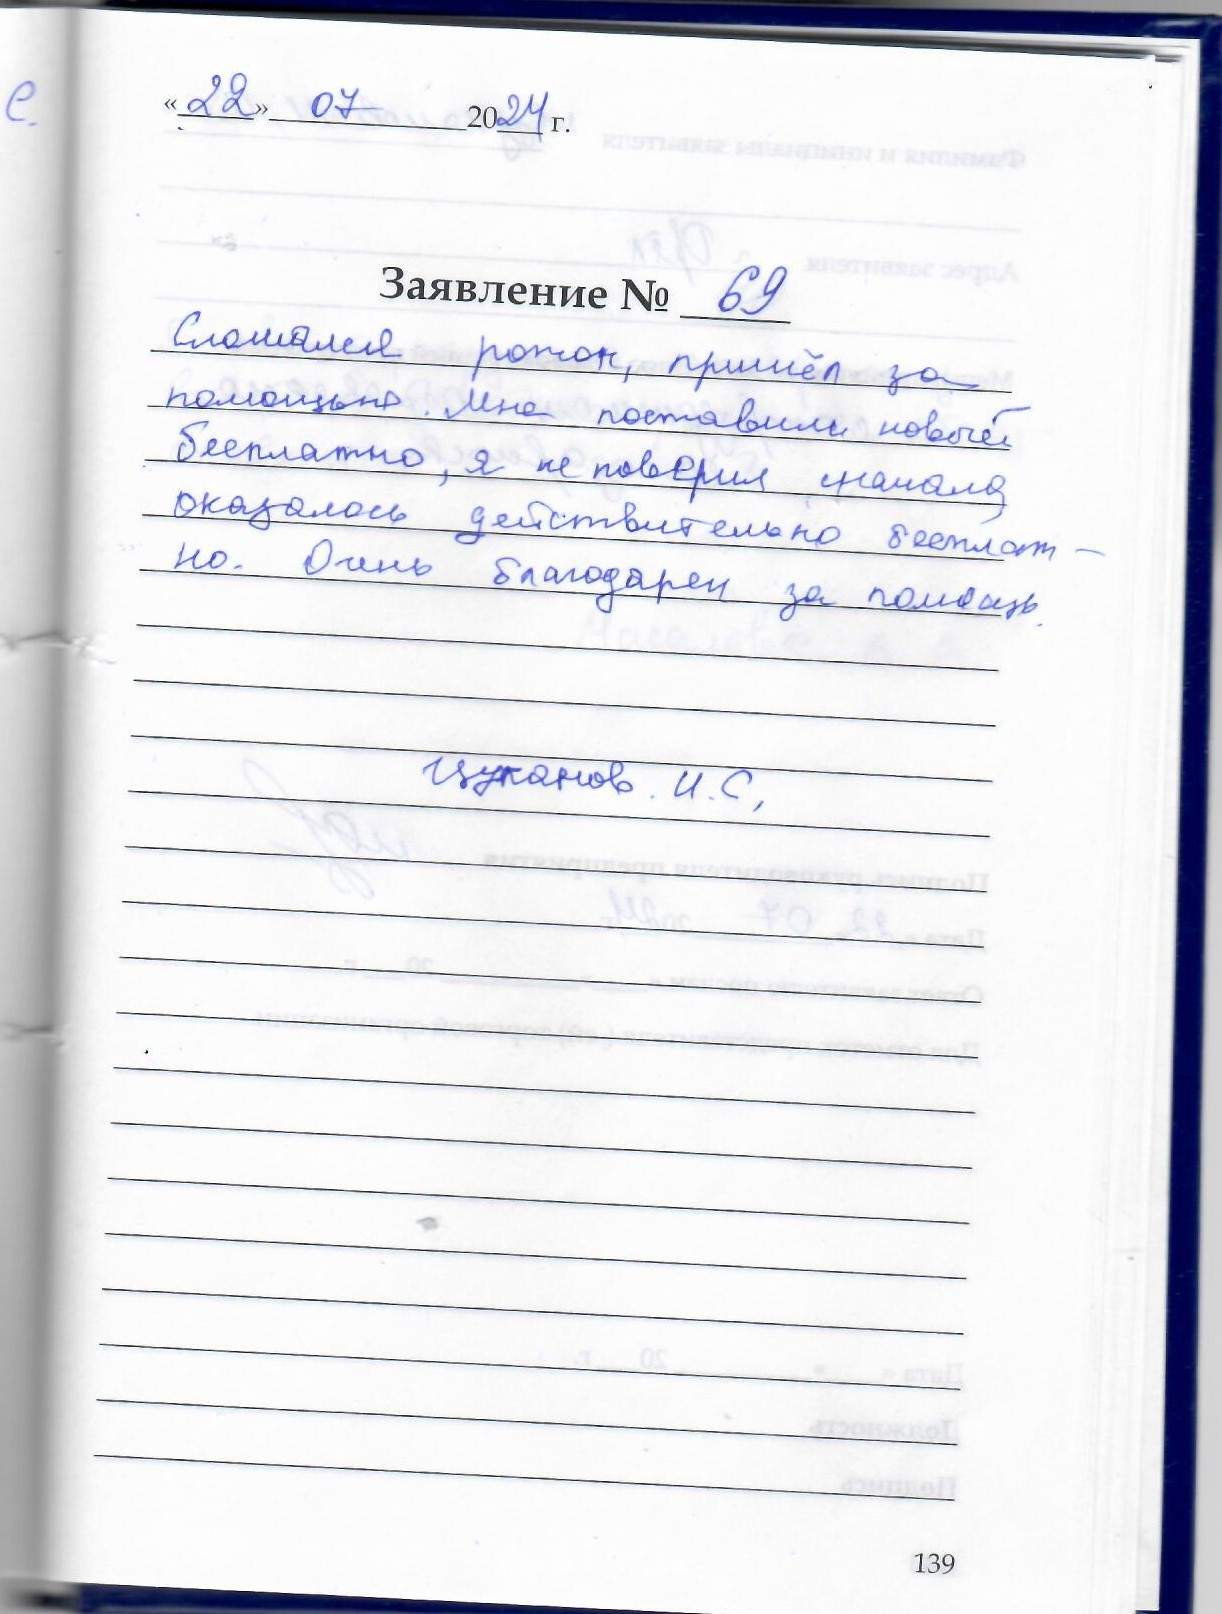 «22» 07 2024 г.
Заявление № 69
Сломался рожок, пришёл за
помощью. Мне поставили новый
бесплатно, я не поверил сначала,
оказалось действительно бесплат-
но. Очень благодарен за помощь.
Цуканов. И.С,
139